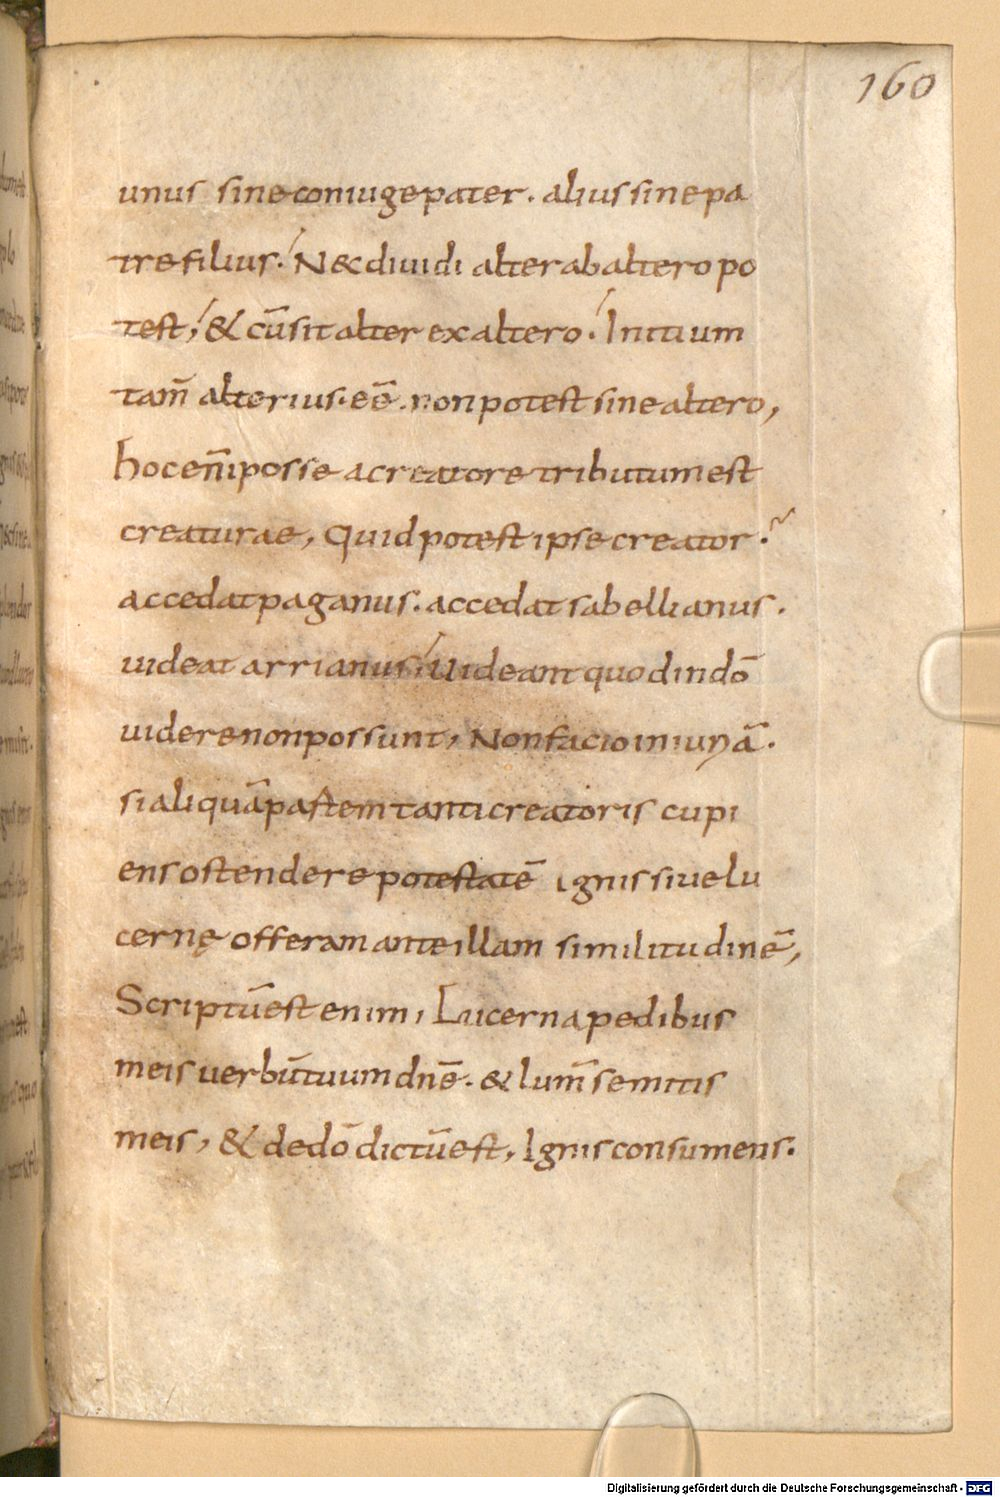 160
unus sine coniuge pater. alius sine pa
tre filius. N& diuidi alter ab altero po
test, & cū sit alter ex altero. Initium
tam̄ alterius. eē. non potest sine altero,
hoc en̄i posse a creatore tributum est
creaturae, Quid potest ipse creator.
accedat paganus. accedat sabellianus.
uideat arrianus. Uideant quod in dō
uidere non possunt, Non facio iniuriā.
si aliquā partem tanti creatoris cupi
ens ostendere potestatē ignis siue lu
cernę offeram ante illam similitudinē,
Scriptū est enim, Lucerna pedibus
meis uerbū tuum dn̄e. & lum̄ semitis
meis, & de dō dictū est, Ignis consumens.
Digitalisierung gefördert durch die Deutsche Forschungsgemeinschaft - DFG